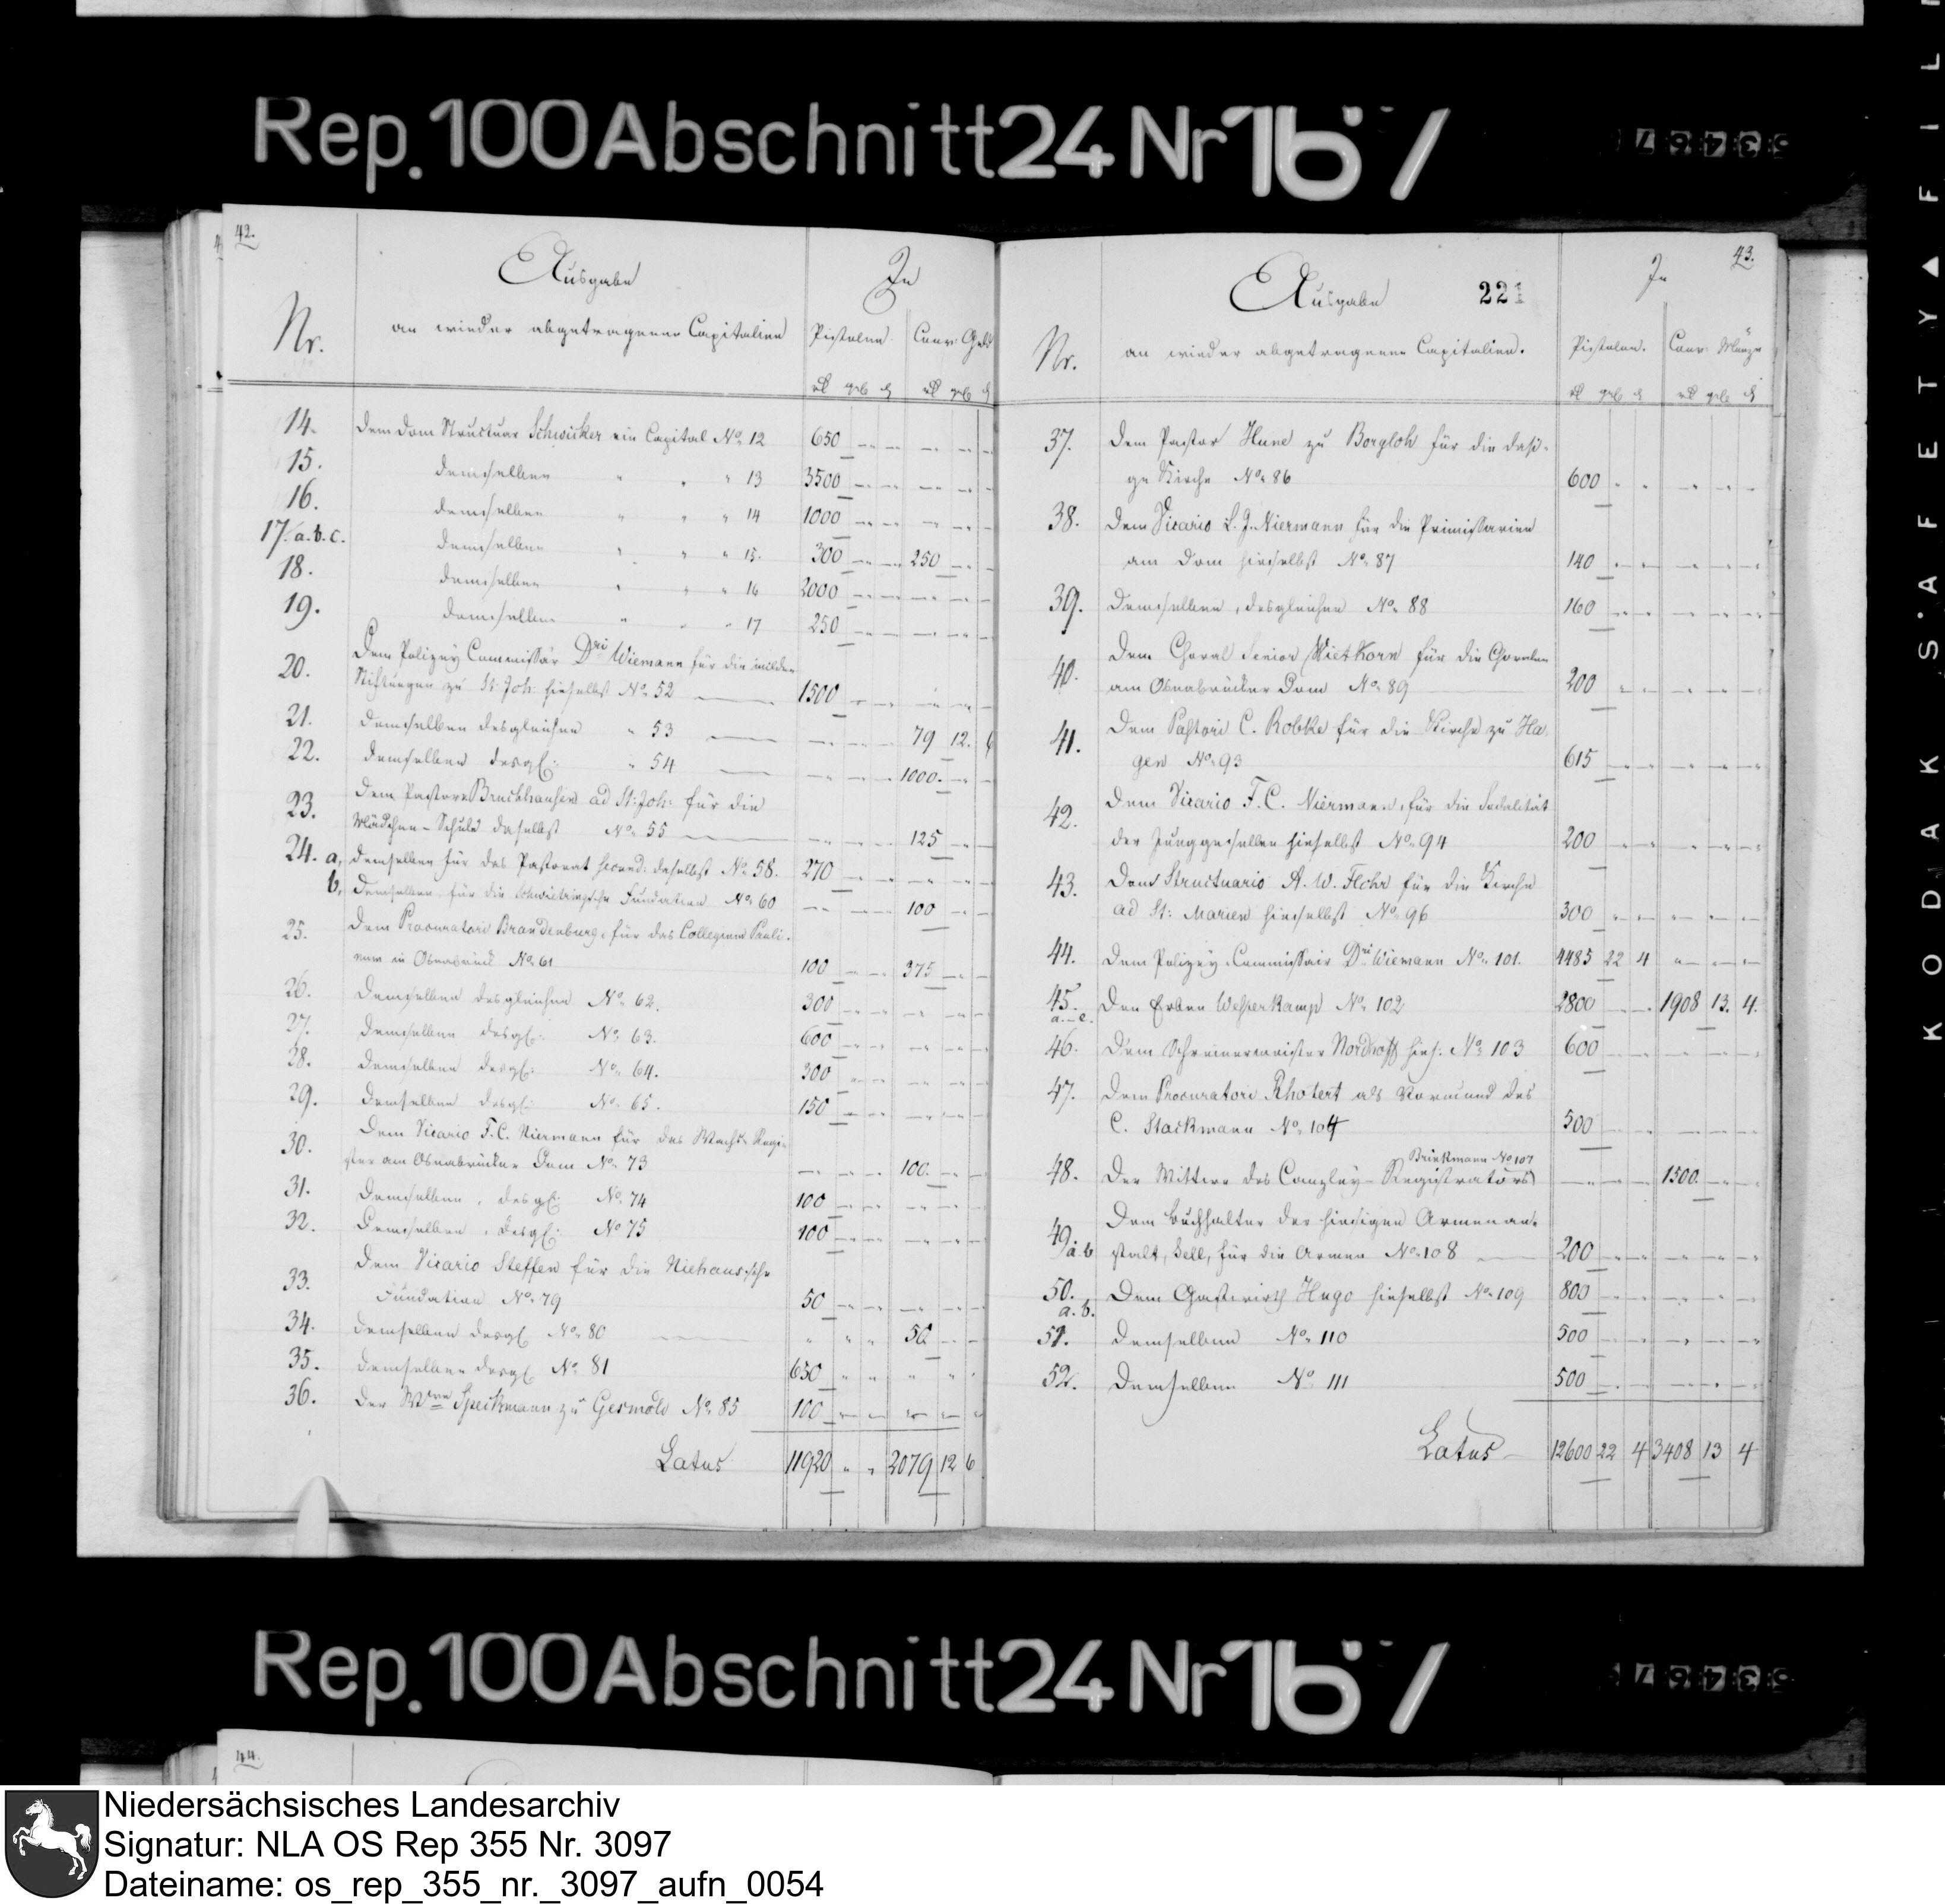 Rep. 100 Abschnitt 24 Nr 167
53467
42.
Ausgabe
In
Nr.
an wieder abgetragenen Capitalien
Pistolen.
Conv. Geld
14. Dem Dom Structuar Schwicker ein Capital No. 12 650
15. demselben " " " 13 3500
16. demselben " " " 14 1000
17. a. b. c. demselben " " " 15. 300 250
18. demselben " " " 16 2000
19. demselben " " " 17 250
Dem Polizey Commissär Dri Wiemann für die milden
20. Stiftungen zu St. Joh. hieselbst No. 52 1500
21. demselben desgleichen " 53 79 12. 6
22. demselben desgl: " 54 1000.
Dem Pastore Bruckhausen ad St: Joh: für die
23. Mädchen-Schule daselbst No. 55 125
24. a, demselben für das Pastorat secund: daselbst No. 58. 270
b, demselben für die Schwietringsche Fundation No. 60 100
25. Dem Procuratori Brandenburg, für das Collegium Pauli-
num in Osnabrück No. 61 100 375
26. demselben desgleichen No. 62. 300
27. demselben desgl: No. 63. 600
28. demselben desgl: No. 64. 300
29. demselben desgl: No. 65. 150
30. Dem Vicario F. C. Niermann für das Wachs-Regi-
ster am Osnabrücker Dom No. 73 100.
31. demselben, desgl: No. 74 100
32. demselben, desgl: No. 75 100
Dem Vicario Steffen für die Niehaussche
33. Fundation No. 79 50
34. demselben desgl No. 80 50
35. demselben desgl No. 81 650
36. Der Wwe Speckmann zu Gesmold No. 85 100
Latus 11920 " " 2079 12 6
43.
Ausgabe
221
In
Nr.
an wieder abgetragenen Capitalien.
Pistolen.
Conv. Münze
37. Dem Pastor Hune zu Borgloh für die dasi-
ge Kirche No. 86 600
38. Dem Vicario L. J. Niermann für die Primissarien
am Dom hieselbst No. 87 140
39. demselben, desgleichen No. 88 160
Dem Choral Senior Wietkorn für die Choralen
40. am Osnabrücker Dom No. 89 200
41. Dem Pastori C. Robke für die Kirche zu Ha-
gen No. 93 615
42. Dem Vicario F. C. Niermann, für die Sodalität
der Junggesellen hieselbst No. 94 200
43. Dem Structuario A. W. Flohr für die Kirche
ad St: Marien hieselbst No. 96 300
44. Dem Polizey-Commissair Dri Wiemann No. 101. 4485 22 4
45. a.-e. Den Erben Wesperkamp No. 102 2800 1908 13. 4.
46. Dem Schreinermeister Nordhoff hies: No. 103 600
47. Dem Procuratori Rhotert als Vormund des
C. Stackmann No. 104 500
Brickmann No 107
48. Der Wittwe des Canzley-Registrators 1500.
Dem Buchhalter der hiesigen Armenan-
49. a b stalt, Sell, für die Armen No. 108 200
50. a. b. Dem Gastwirth Hugo hieselbst No. 109 800
51. demselben No. 110 500
52. demselben No. 111 500
Latus 12600 22 4 3408 13 4
Rep. 100 Abschnitt 24 Nr 167
53467
44.
KODAK SAFETY FIL
Niedersächsisches Landesarchiv
Signatur: NLA OS Rep 355 Nr. 3097
Dateiname: os_rep_355_nr._3097_aufn_0054